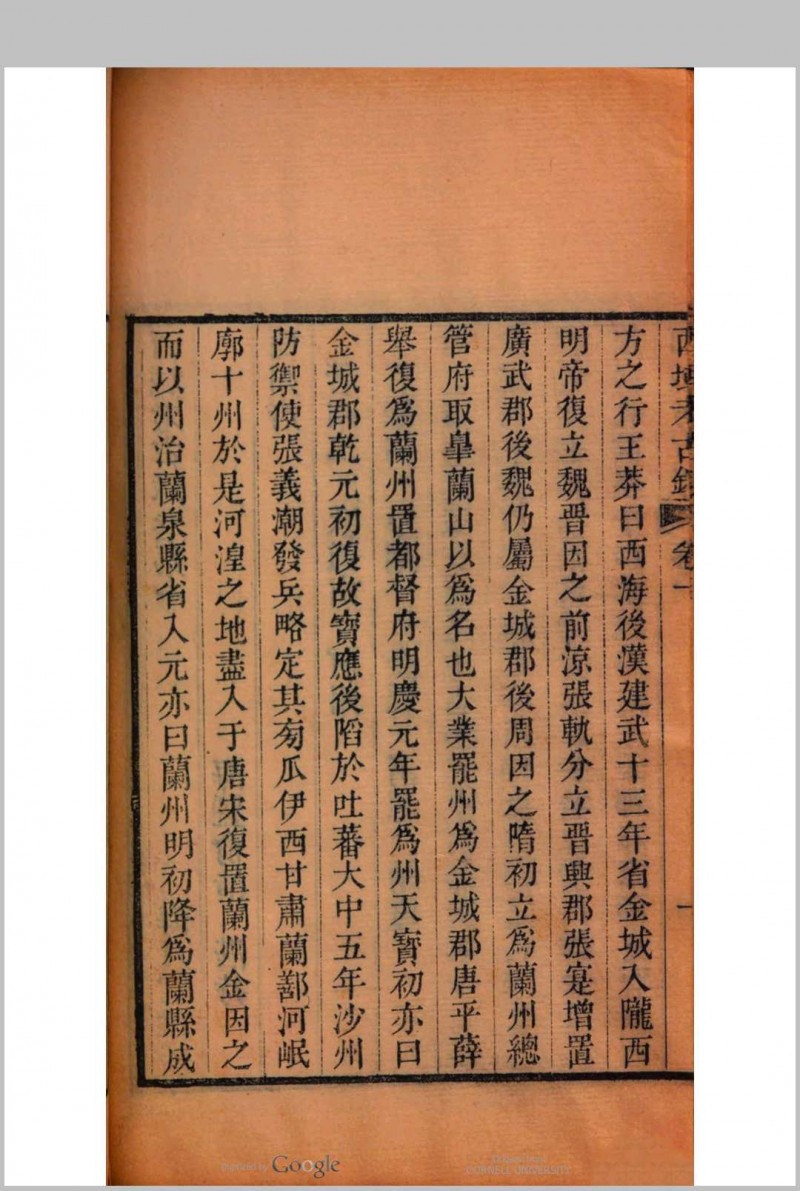 西域考古錄 卷十 一
方之行王莽曰西海後漢建武十三年省金城入隴西
明帝復立魏晋因之前涼張軌分立晋興郡張寔增置
廣武郡後魏仍屬金城郡後周因之隋初立爲蘭州總
管府取臯蘭山以爲名也大業罷州爲金城郡唐平薛
舉復爲蘭州置都督府明慶元年罷爲州天寶初亦曰
金城郡乾元初復故寶應後陷於吐蕃大中五年沙州
防禦使張義潮發兵略定其旁瓜伊西甘肅蘭鄯河岷
廓十州於是河湟之地盡入于唐宋復置蘭州金因之
而以州治蘭泉縣省入元亦曰蘭州明初降爲蘭縣成
Digitized by Google
Original from
CORNELL UNIVERSITY